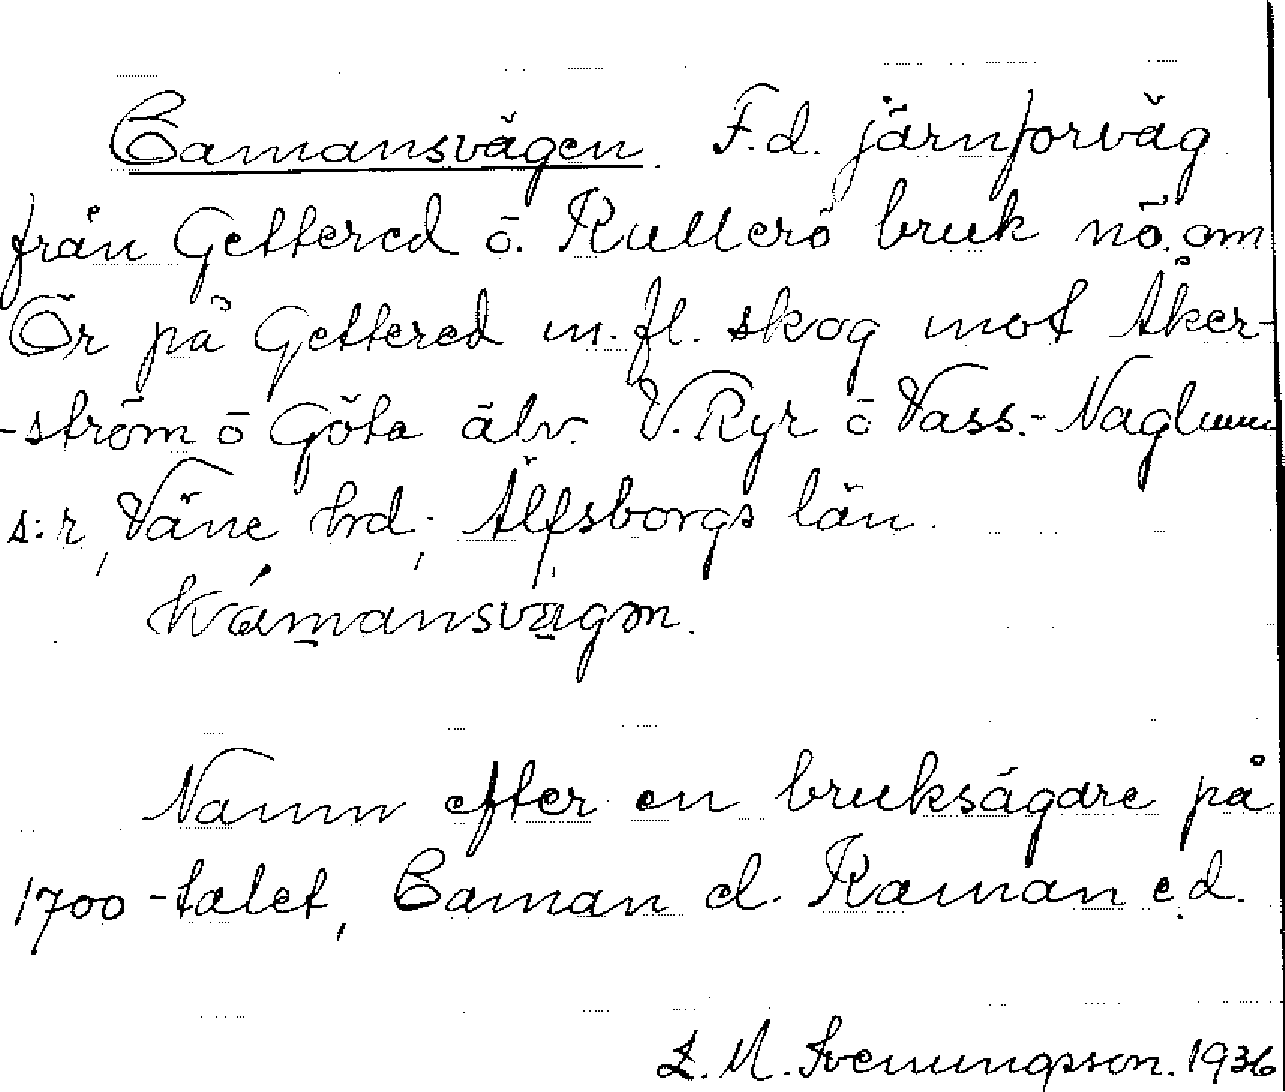 Camansvägen. F.d. järnforväg
från Gettered ö. Rullerö bruk nö. om
Ör på Gettered m.fl. skog mot Åker-
-ström ö Göta älv. V. Ryr ö Vass.-Naglum
s:r, Väne hrd, Älfsborgs län.
Kámansvägən.
Namn efter en bruksägare på
1700-talet, Caman el. Kaman e.d.
L. M. Svenungsson. 1936